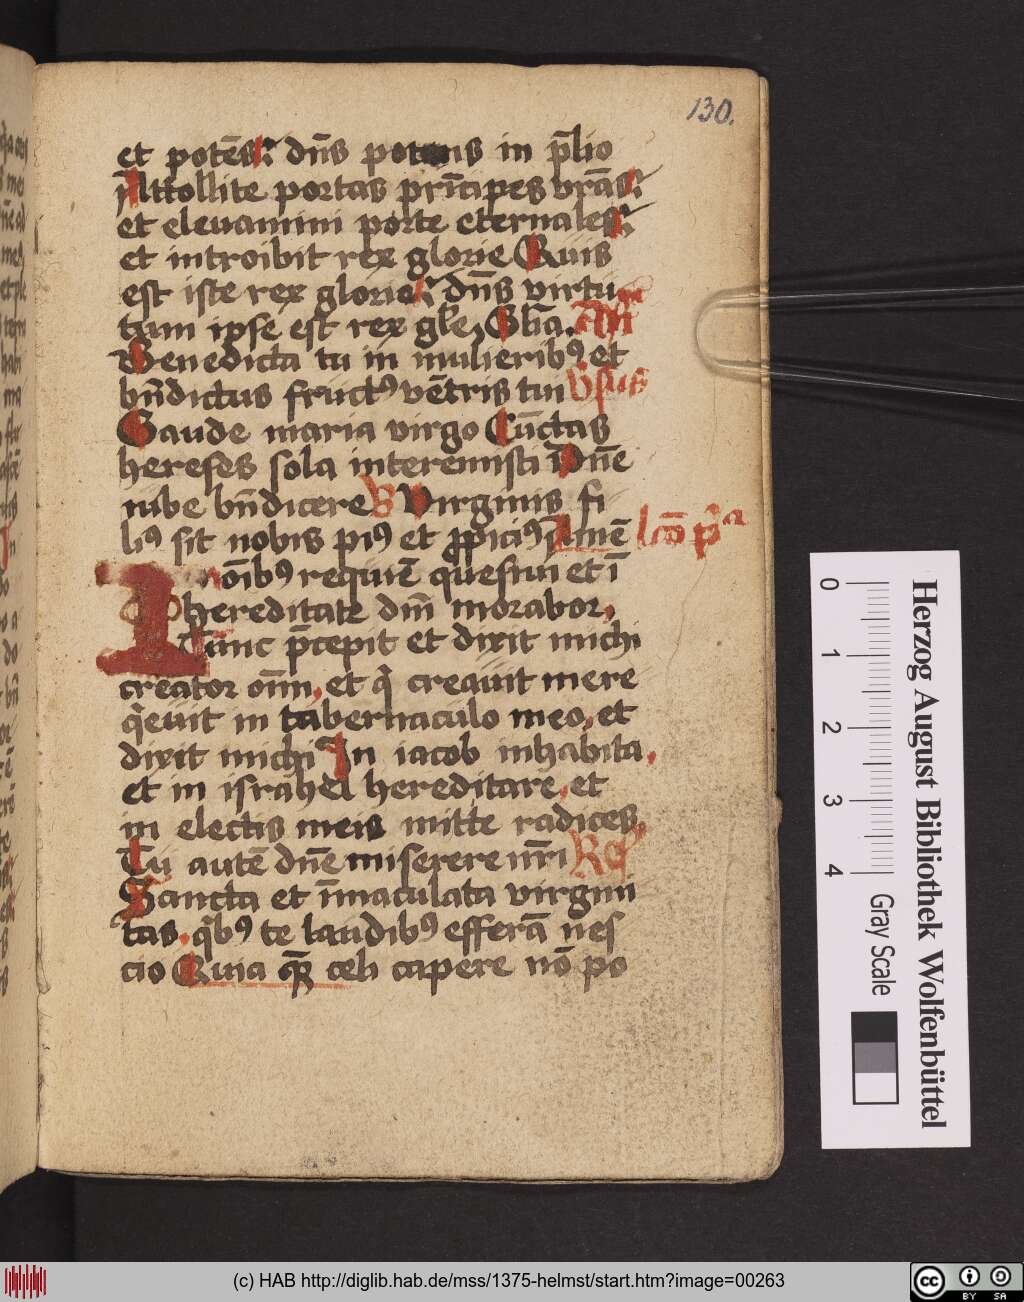 130.
et potēs: dn̄s potens in p̄lio
Attollite portas prīcipes vrās:
et eleuamini porte eternales:
et introibit rex glorie Quis
est iste rex glorie: dn̄s virtu
tum ipse est rex gle, Gl̄ia. An̄
Benedicta tu in mulieribꝰ et
bn̄dictus fructꝰ vētris tui v̄sus
Gaude maria virgo Cūctas
hereses sola interemisti Dn̄e
iube bn̄dicere B Virginis fi
liꝰ sit nobis piꝰ et ꝓpiciꝰ Amē lcō pͣ
In oībꝰ requiē quesiui et ī
hereditate dn̄i morabor,
Tunc p̄cepit et dixit michi
creator oīm, et qͥ creauit me re
qͥeuit in tabernaculo meo, et
dixit michi In iacob inhabita,
et in israhel hereditare, et
in electis meis mitte radices,
Tu autē dn̄e miserere nr̄i Rͫ
Sancta et īmaculata virgini
tas, qͥbꝰ te laudibꝰ efferā nes
cio Quia quē celi capere nō po
0 1 2 3 4
Herzog August Bibliothek Wolfenbüttel
Gray Scale
(c) HAB http://diglib.hab.de/mss/1375-helmst/start.htm?image=00263
cc BY SA